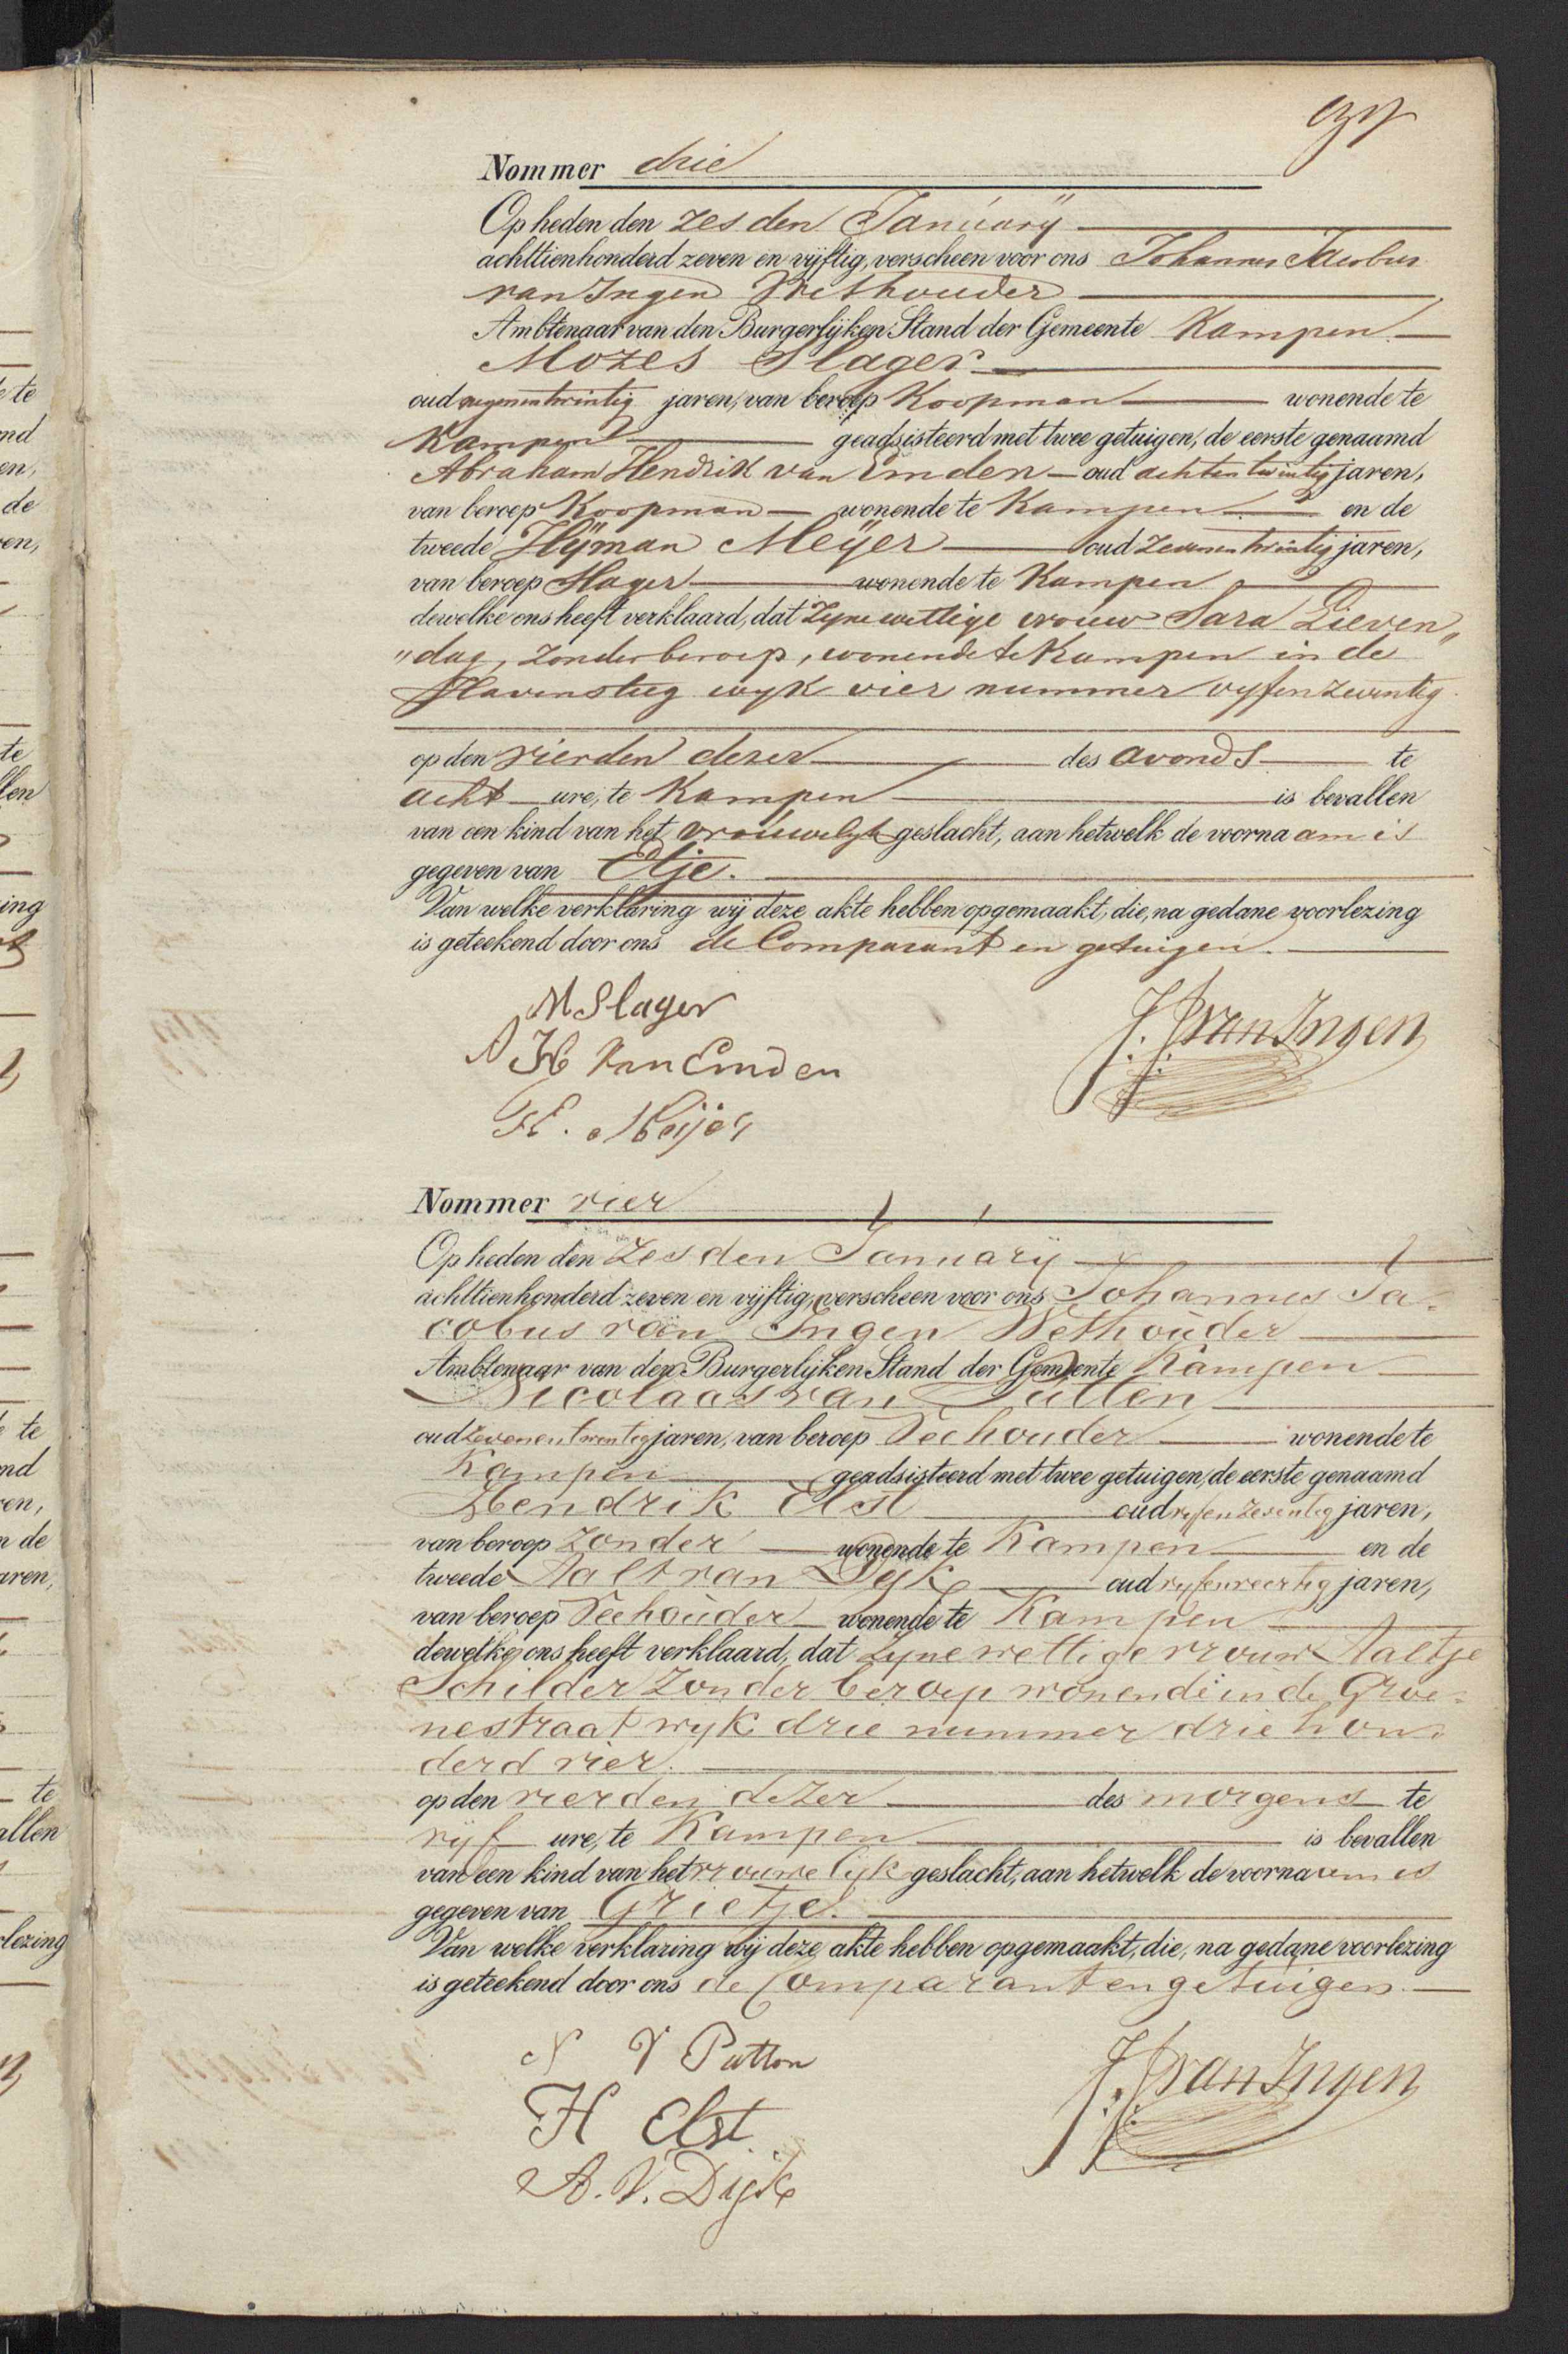 Nommer drie
Op heden den zesden Januarÿ
achttienhonderd zeven en vijftig, verscheen voor ons Johannes Jacobus
van Ingen Wethouder
Ambtenaar van den Burgerlijken Stand der Gemeente Kampen
Mozes Slager
oud negenentwintig jaren, van beroep Koopman wonende te
Kampen geadsisteerd met twee getuigen, de eerste genaamd
Abraham Hendrik van Emden oud achtentwintig jaren,
van beroep Koopman wonende te Kampen en de
tweede Hÿman Meÿer oud zevenentwintig jaren,
van beroep Slager wonende te Kampen
dewelke ons heeft verklaard, dat zyne wettige vrouw Sara Lieven„
„dag, zonder beroep, wonende te Kampen in de
Havensteeg wyk vier nummer vyfenzeventig
op den vierden dezer des avonds te
acht ure, te Kampen is bevallen
van een kind van het vrouwelyk geslacht, aan hetwelk de voornaam is
gegeven van Etje.
Van welke verklaring wij deze akte hebben opgemaakt, die, na gedane voorlezing
is geteekend door ons de Comparant en getuigen.
M Slager
J. J. van Ingen
A H Van Emden
H. Meijer
Nommer vier
Op heden den zesden Januarÿ
achttienhonderd zeven en vijftig, verscheen voor ons Johannes Ja-
cobus van Ingen Wethouder
Ambtenaar van den Burgerlijken Stand der Gemeente Kampen
Nicolaas van Putten
oud zevenentwentig jaren, van beroep Veehouder wonende te
Kampen geadsisteerd met twee getuigen, de eerste genaamd
Hendrik Elst oud vyfenzeventig jaren,
van beroep zonder wonende te Kampen en de
tweede Aalt van Dyk oud vyfenveertig jaren,
van beroep Veehouder wonende te Kampen
dewelke ons heeft verklaard, dat zyne wettige vrouw Aaltje
Schilder zonder beroep wonende in de Groe-
nestraat wyk drie nummer drie hon-
derd vier.
op den vierden dezer des morgens te
vyf ure, te Kampen is bevallen
van een kind van het vrouwelyk geslacht, aan hetwelk de voornaam is
gegeven van Grietje.
Van welke verklaring wij deze akte hebben opgemaakt, die, na gedane voorlezing
is geteekend door ons de Comparant en getuigen.
N V Putten
J. J. van Ingen
H Elst
A. V. Dijk